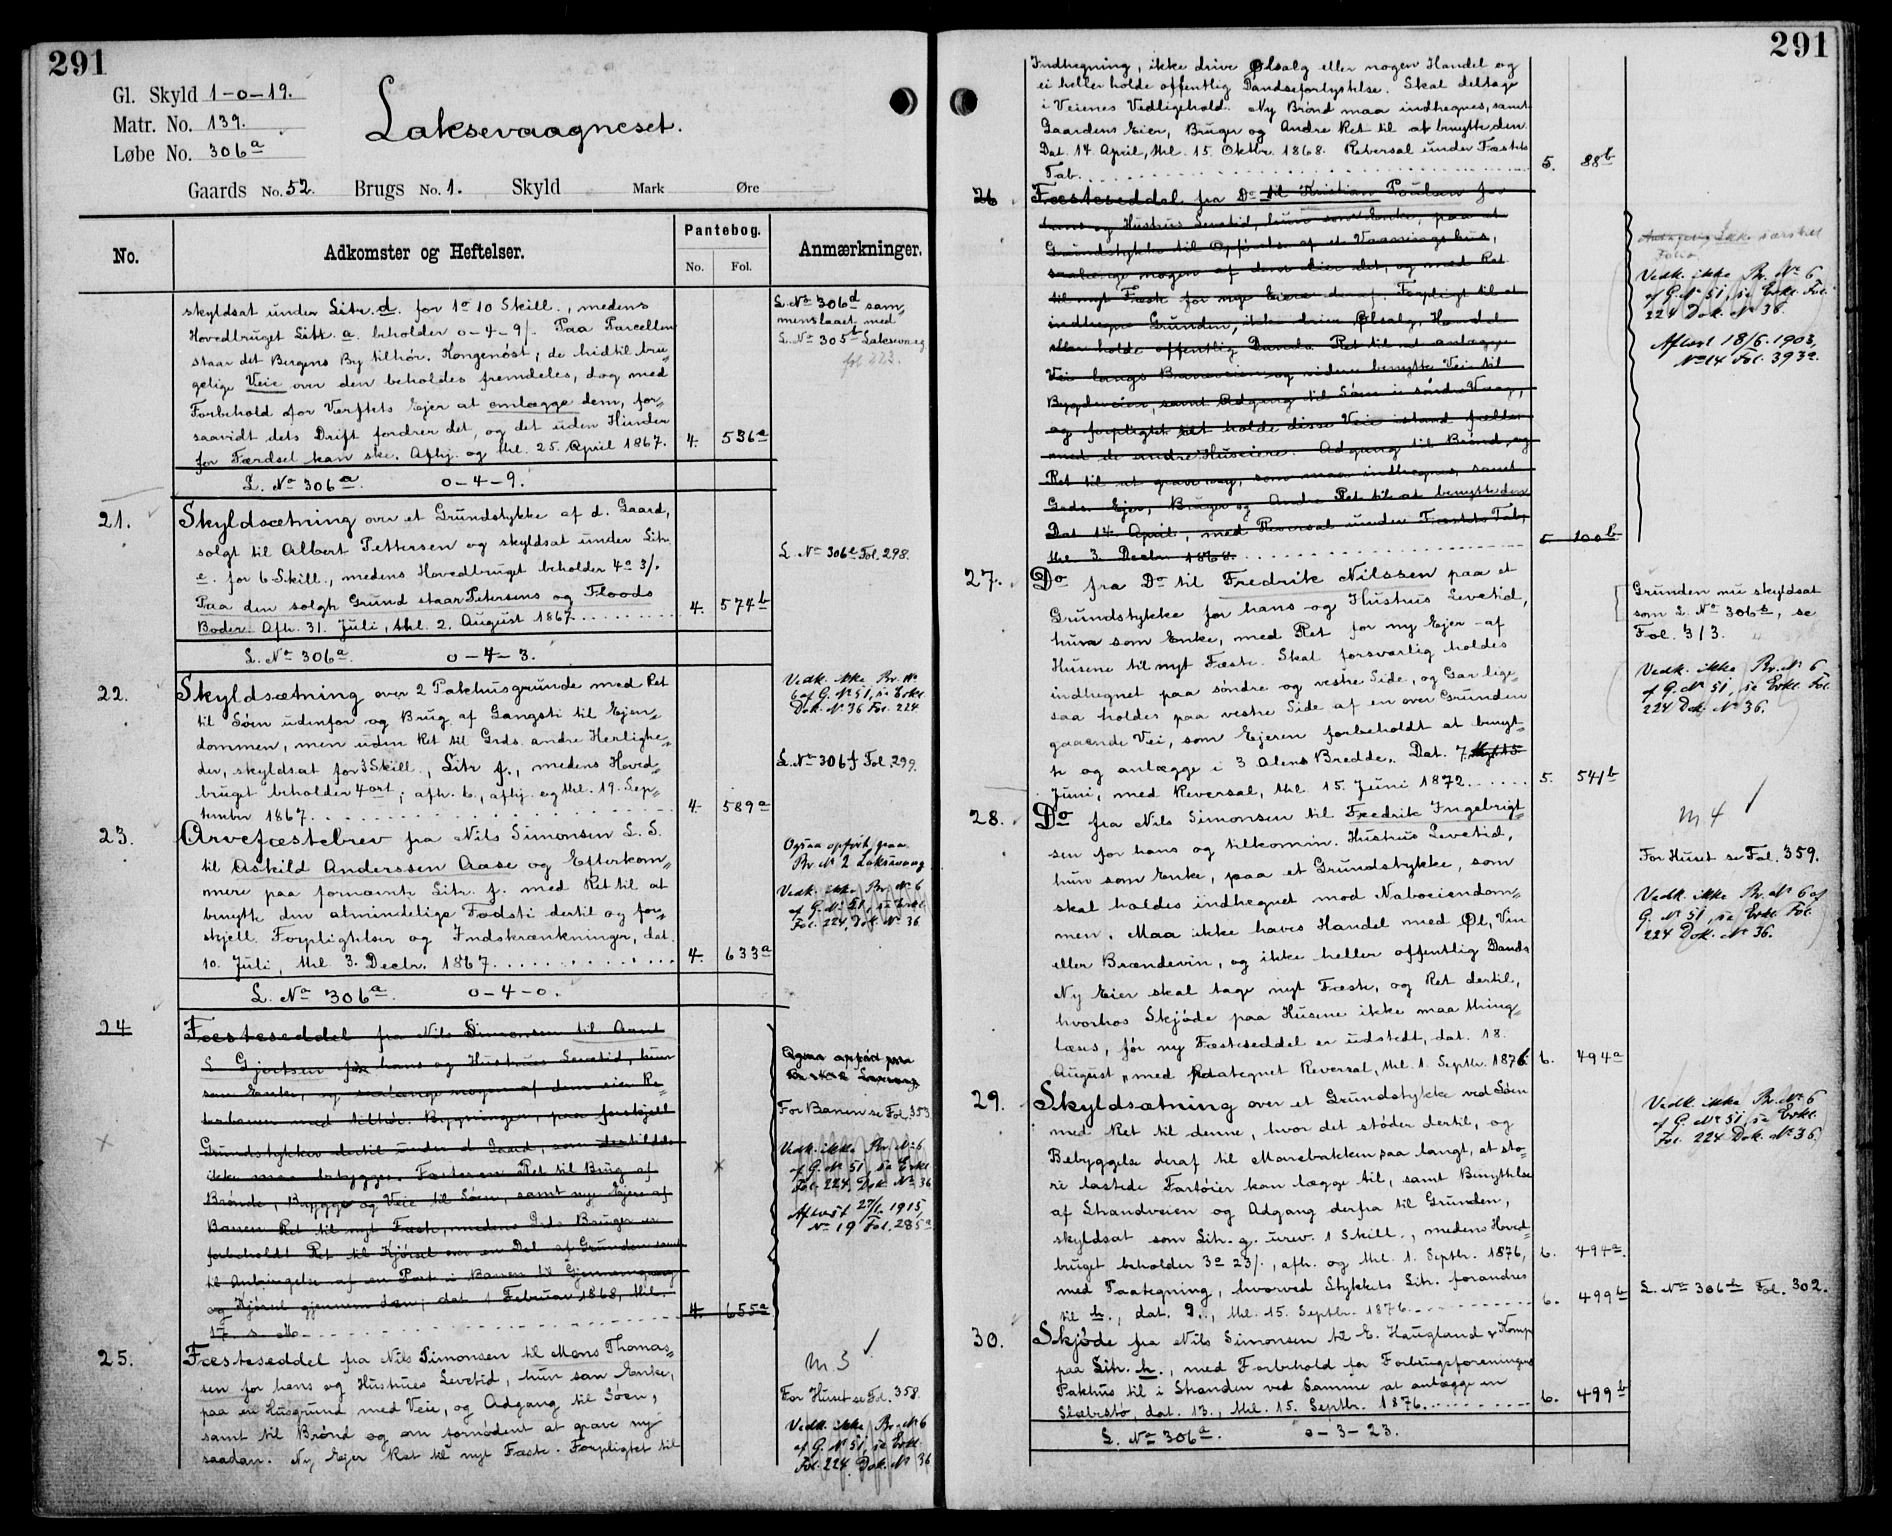 291
Gl. Skyld 1-0-19.
Matr. No. 139.
Løbe No. 306a
Laksevaagneset.
Gaards No. 52. Brugs No. 1. Skyld Mark Øre
No.
Adkomster og Heftelser.
Pantebog.
No. Fol.
Anmærkninger.
skyldsat under Litr. d. for 1o 10 Skill., medens
Hovedbruget Litr. a. beholder 0-4-9/. Paa Parcellen
staar det Bergens By tilhør. Kongenøst; de hidtil bru-
gelige Veie over den beholdes fremdeles, dog med
Forbehold for Verftets Ejer at omlægge dem, for-
saavidt dets Drift fordrer det, og det uden Hinder
for Færdsel kan ske. Afhj. og thl. 25. April 1867. 4. 536a
L. No 306d sam-
menslaaet med
L. No 305b Laksevaag
fol 223.
L. No 306a. 0-4-9.
21. Skyldsætning over et Grundstykke af d. Gaard,
solgt til Albert Pettersen og skyldsat under Litr.
e. for 6 Skill., medens Hovedbruget beholder 4o 3/.
Paa den solgte Grund staar Petersens og Floods
Boder. Afh. 31. Juli, thl. 2. August 1867. 4. 574b
L. No 306e Fol. 298.
L. No 306a. 0-4-3.
22. Skyldsætning over 2 Pakhusgrunde med Ret
til Søen udenfor og Brug af Gangsti til Ejen-
dommen, men uden Ret til Grds. andre Herlighe-
der, skyldsat for 3 Skill., Litr f., medens Hoved-
bruget beholder 4 ort; afh. 6., afhj. og thl. 19. Sep-
tember 1867. 4. 589a
Vedk. ikke Br. No
6 af G. No 51, se Erkl.
Dok. No 36 Fol. 224.
L. No 306f Fol. 299.
23. Arvefæstebrev fra Nils Simonsen L. S.
til Askild Anderssen Aase og Efterkom-
mere paa fornævnte Litr. f. med Ret til at
benytte den almindelige Fodsti dertil og for-
skjell. Forpligtelser og Indskrænkninger, dat.
10. Juli, thl. 3. Decbr. 1867. 4. 633a
Ogsaa opført paa
Br. No 2 Laksevaag
Vedk. ikke Br. No 6
af G. No 51, se Erkl.
Fol. 224, Dok. No 36
L. No 306a. 0-4-0.
24 Fæsteseddel fra Nils Simonsen til Arnt
L. Gjertsen for hans og Hustrues Levetid, hun
som Enke, og saalænge nogen af dem eier Re-
berbanen med tilhør. Bygninger, paa forskjell
Grundstykker dertil under d. Gaard, som
ikke maa bebygges. Fæsteren Ret til Brug af
Brønde, Brygge og Veie til Søen, samt nye Ejere af
Banen Ret til nyt Fæste, medens Grds Bruger er
forbeholdt Ret til Kjørsel over en Del af Grunden samt
til Anbringelse af en Port i Banen til Gjennemgang
og Kjørsel gjennem den; dat. 1 Februar 1868, thl.
17. s. M. 4. 655a
Ogsaa opført paa
For Banen se Fol. 353
Vedk. ikke Br. No 6
af G. No 51, se Erkl.
Fol. 224, Dok. No 36
Aflæst 27/1 1915,
No 19 Fol. 285a.
25. Fæsteseddel fra Nils Simonsen til Mons Thomas-
sen for hans og Hustrues Levetid, hun som Enke,
paa en Husgrund med Veie, og Adgang til Søen,
samt til Brønd og om fornødent at grave ny
saadan. Ny Ejer Ret til nyt Fæste. Forpligtet til
M 3
For Huset se Fol. 358.
Vedk. ikke Br. No 6
af G. No 51, se Erkl.
Fol. 224. Dok. No 36
291
Indhegning, ikke drive Ølsalg eller nogen Handel og
ei heller holde offentlig Dandseforlystelse. Skal deltage
i Veienes Vedligehold. Ny Brønd maa indhegnes, samt
Gaardens Eier, Bruger og Andre Ret til at benytte den.
Dat. 14. April, thl. 15. Oktbr. 1868. Reversal under Fæstets
Tab. 5. 88b
26 Fæsteseddel fra Do til Kristian Poulsen for
hans og Hustrus Levetid, hun som Enke, paa et
Grundstykke til Opførelse af et Vaaningshus,
saalænge nogen af dem eier det, og med Ret
til nyt Fæste for nye Eiere deraf. Forpligt. til at
indhegne Grunden, ikke drive Ølsalg, Handel
eller holde offentlig Dands. Ret til at anlægge
Vei langs Baneveien og videre benytte Vei til
Bygdeveien, samt Adgang til Søen i søndre Vaag,
og forpligtet at holde disse Veie istand fælles
med de andre Huseiere. Adgang til Brønd, og
Ret til at grave ny, som maa indhegnes, samt
Grds. Ejer, Bruger og Andre Ret til at benytte den.
Dat 14 April, med Reversal under Fæstets Tab,
thl. 3. Decbr. 1868. 5 100b
særskilt
Folio.
Vedk. ikke Br. No 6
af G. No 51, se Erkl. Fol.
224 Dok. No 36.
Aflæst 18/6. 1903,
No 14 Fol. 393a.
27. Do fra Do til Fredrik Nilssen paa et
Grundstykke for hans og Hustrus Levetid,
hun som Enke, med Ret for ny Ejer af
Husene til nyt Fæste. Skal forsvarlig holdes
indhegnet paa søndre og vestre Side, og Gar lige-
saa holdes paa vestre Side af en over Grunden
gaaende Vei, som Ejeren forbeholdt at benyt-
te og anlægge i 3 Alens Bredde. Dat. 7.
Juni, med Reversal, thl. 15. Juni 1872. 5. 541b
Grunden nu skyldsat
som L. No 306, se
Fol. 313.
Vedk. ikke Br. No 6
af G. No 51, se Erkl. Fol.
224 Dok. No 36.
28. Do fra Nils Simonsen til Fredrik Ingebrigt-
sen for hans og tilkomm. Hustrus Levetid,
hun som Enke, paa et Grundstykke, som
skal holdes indhegnet mod Naboeiendom-
men. Maa ikke haves Handel med Øl, Vin
eller Brændevin, og ikke heller offentlig Dands
Ny Eier skal tage nyt Fæste, og Ret dertil,
hvorhos Skjøde paa Husene ikke maa thing-
læses, før ny Fæsteseddel er udstedt, dat. 18.
August, med paategnet Reversal, thl. 1. Septbr. 1876. 6. 494a
M. 4
For Huset se Fol. 359.
Vedk. ikke Br. No 6 af
G. No 51, se Erkl. Fol.
224 Dok. No 36.
29. Skyldsætning over et Grundstykke ved Søen
med Ret til denne, hvor det støder dertil, og
Bebyggelse deraf til Marebakken saa langt, at sto-
re lastede Fartøier kan lægge til, samt Benyttelse
af Strandveien og Adgang derfra til Grunden,
skyldsat som Litr. g. urev. 1 Skill., medens Hoved-
bruget beholder 3o 23/., afh. og thl. 1. Septbr. 1876, 6. 494a.
med Paategning, hvorved Stykkets Litr. forandres
til h., dat. 9., thl. 15. Septbr. 1876. 6. 499b
Vedk. ikke Br. No 6
af G. No 51, se Erkl.
Fol. 224 Dok. No 36
L. No 306h Fol. 302.
30. Skjøde fra Nils Simonsen til E. Haugland & Komp
paa Litr. h., med Forbehold for Forbrugsforeningens
Pakhus til i Stranden ved Samme at anlægge en
Slæbestø, dat. 13., thl. 15. Septbr. 1876. 6. 499b
L. No 306a. 0-3-23.